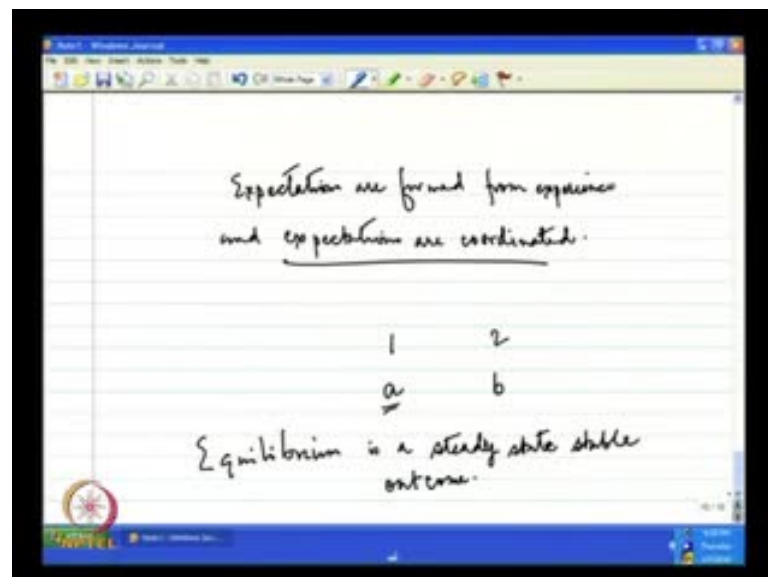 Note1 - Windows Journal
File Edit View Insert Actions Tools Help
Expectation are formed from experience
and expectations are coordinated.
1 2
a b
Equilibrium is a steady state stable
outcome.
NPTEL